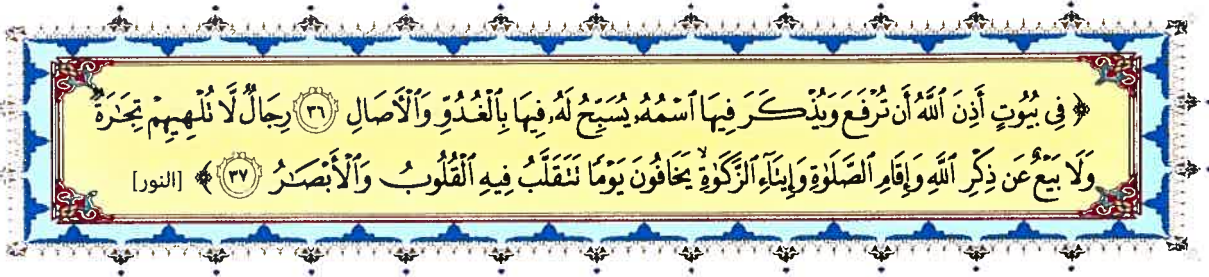 ﴿ فِى بُيُوتٍ أَذِنَ ٱللَّهُ أَن تُرْفَعَ وَيُذْكَرَ فِيهَا ٱسْمُهُۥ يُسَبِّحُ لَهُۥ فِيهَا بِٱلْغُدُوِّ وَٱلْأَصَالِ ٣٦ رِجَالٌ لَّا تُلْهِيهِمْ تِجَٰرَةٌ
وَلَا بَيْعٌ عَن ذِكْرِ ٱللَّهِ وَإِقَامِ ٱلصَّلَوٰةِ وَإِيتَآءِ ٱلزَّكَوٰةِ ۙ يَخَافُونَ يَوْمًا تَتَقَلَّبُ فِيهِ ٱلْقُلُوبُ وَٱلْأَبْصَٰرُ ٣٧ ﴾ [النور]